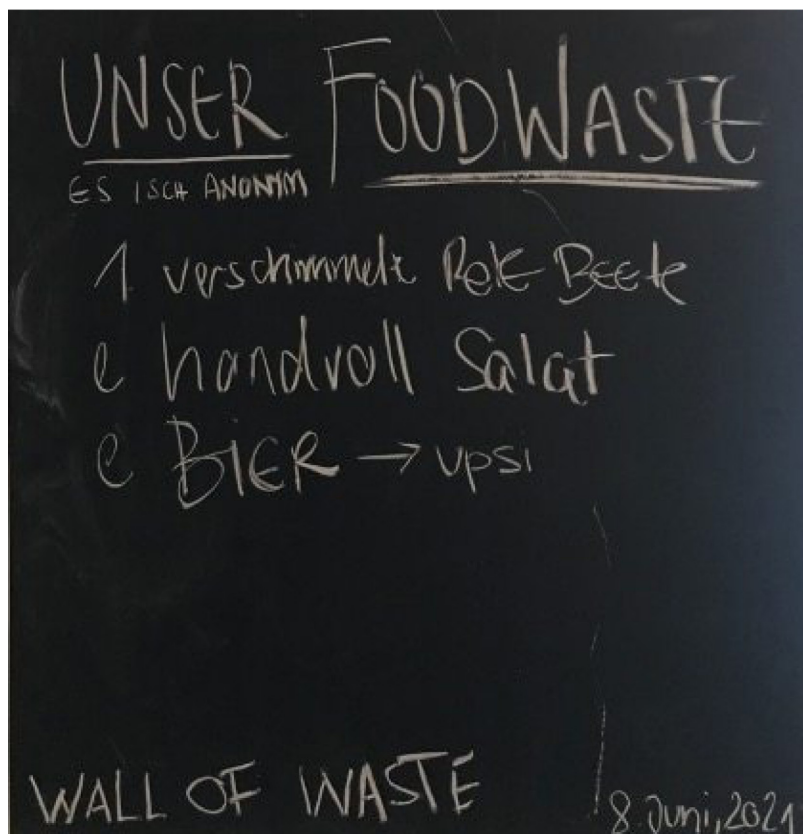 UNSER FOODWASTE
ES ISCH ANONYM
1 verschimmelte Rote Beete
e handvoll Salat
e BIER → upsi
WALL OF WASTE
8. Juni, 2021